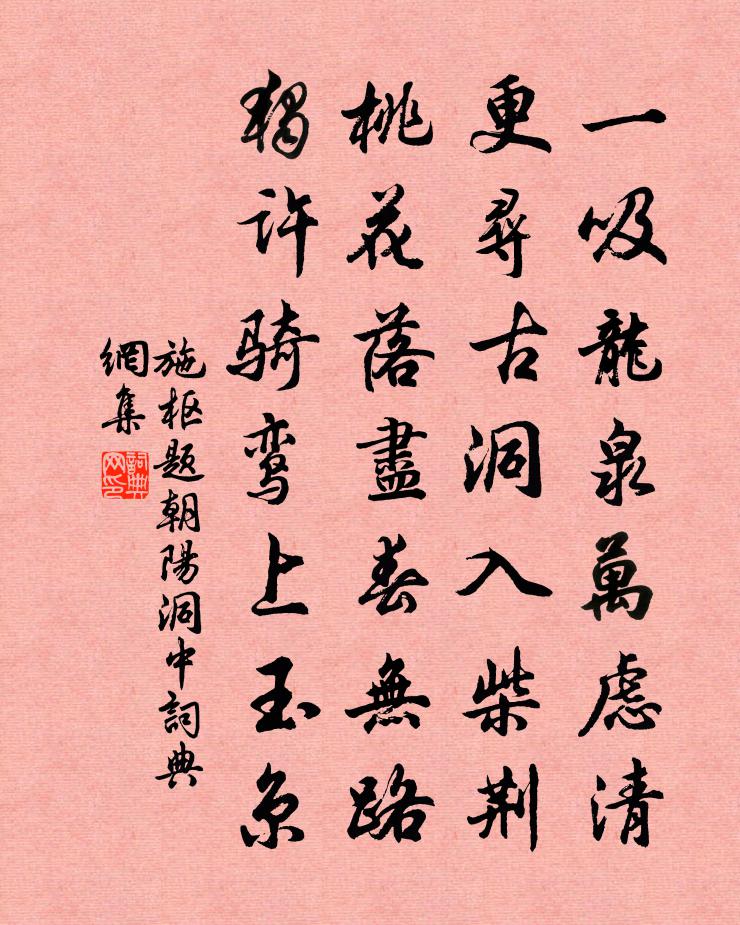 一吸龍泉萬慮清
更尋古洞入柴荆
桃花落盡春無路
獨许骑鸾上玉京
施枢题朝陽洞中詞典
網集
詞典网印